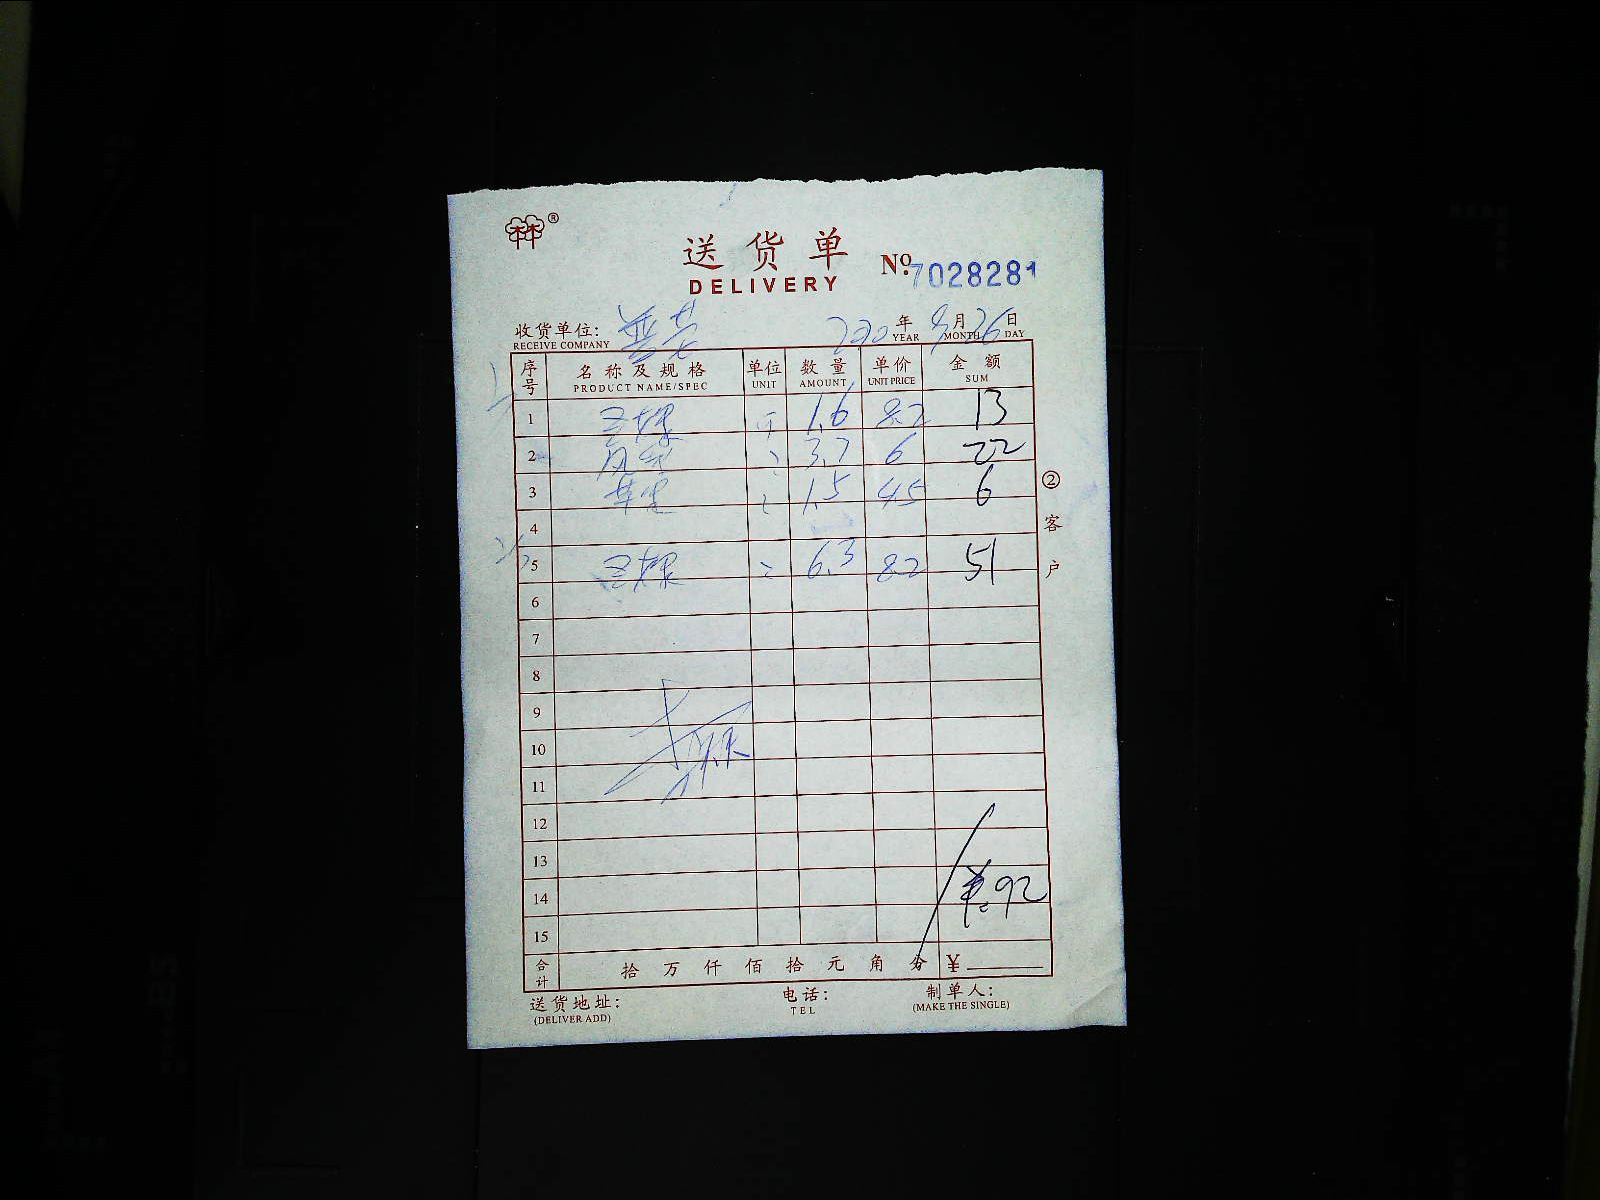 送货单
DELIVERY
№ 7028281
收货单位:
RECEIVE COMPANY
年 月 26 日
YEAR MONTH DAY
序号 名称及规格 单位 数量 单价 金额
PRODUCT NAME/SPEC UNIT AMOUNT UNIT PRICE SUM
1 1.6 8.2 13
2 3.7 6 22
3 1.5 45 6
4
5 6.3 82 51
6
7
8
9
10
11
12
13
14 ¥:92
15
合计 拾 万 仟 佰 拾 元 角 分 ¥
送货地址: 电话: 制单人:
(DELIVER ADD) TEL (MAKE THE SINGLE)
② 客户